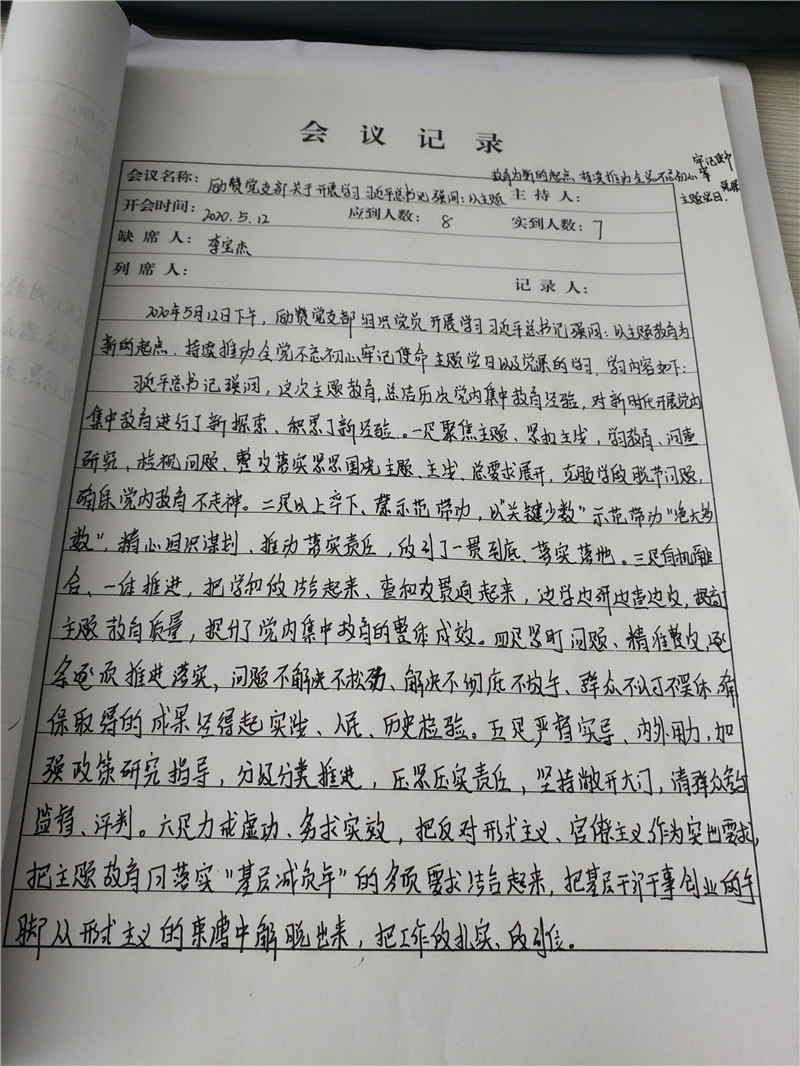 会议记录
牢记使命
教育为新的起点、持续推动全党不忘初心牢
会议名称：励赞党支部关于开展学习习近平总书记强调：以主题 主持人： 党课
主题党日.
开会时间：2020.5.12 应到人数：8 实到人数：7
缺席人：李宝杰
列席人： 记录人：
2020年5月12日下午，励赞党支部组织党员开展学习习近平总书记强调：以主题教育为
新的起点、持续推动全党不忘初心牢记使命主题党日以及党课的学习，学习内容如下：
习近平总书记强调，这次主题教育，总结历次党内集中教育经验，对新时代开展党内
集中教育进行了新探索、积累了新经验。一是聚焦主题、紧扣主线，学习教育、调查
研究、检视问题、整改落实紧紧围绕主题、主线、总要求展开，克服学做脱节问题，
确保党内教育不走神。二是以上率下、示范带动，以“关键少数”示范带动“绝大多
数”，精心组织谋划、推动落实责任，做到了一贯到底、落实落地。三是有机融
合、一体推进，把学和做结合起来、查和改贯通起来，边学边研边查边改，提高了
主题教育质量，提升了党内集中教育的整体成效。四是紧盯问题、精准整改，逐
条逐项推进落实，问题不解决不松劲、解决不彻底不放手、群众不认可不罢休，确
保取得的成果经得起实践、人民、历史检验。五是严督实导、内外用力，加
强政策研究指导，分级分类推进，压紧压实责任，坚持敞开大门，请群众参与
监督、评判。六是力戒虚功、务求实效，把反对形式主义、官僚主义作为突出要求，
把主题教育同落实“基层减负年”的各项要求结合起来，把基层干部干事创业的手
脚从形式主义的束缚中解脱出来，把工作做扎实、做到位。